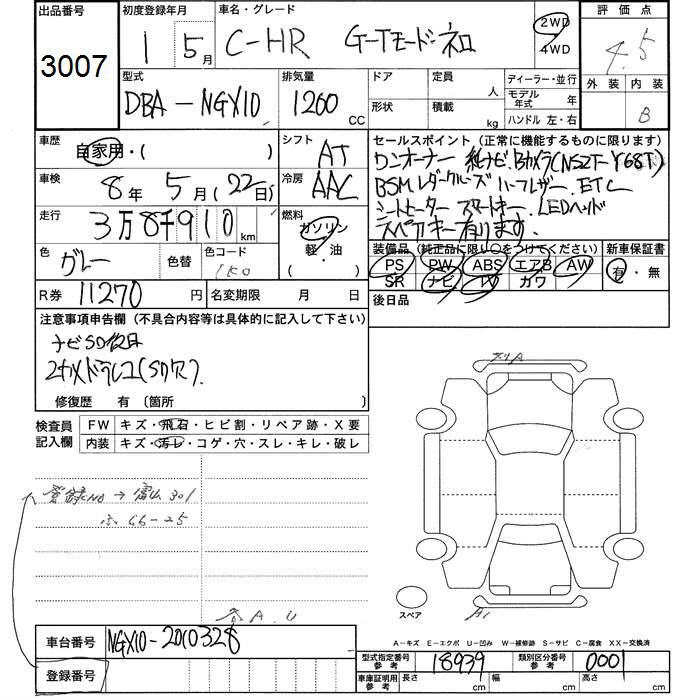 出品番号
3007
初度登録年月
1 5月
車名・グレード
C-HR G-Tモード・ネロ
2WD
4WD
評価点
4.5
外装 内装
B
型式
DBA-NGX10
排気量
1200 CC
ドア
形状
定員 人
積載 kg
ディーラー・並行
モデル年式 年
ハンドル 左・右
車歴
自家用・( )
シフト
AT
車検
8年 5月(22日)
冷房
AAC
走行
3万8千910km
燃料
ガソリン
軽・油
・( )
色
グレー
色替
色コード
1K0
R券 11270 円
名変期限 月 日
セールスポイント(正常に機能するものに限ります)
ワンオーナー 純ナビ.Bカメラ(NSZT-Y68T)
BSM レダークルーズ ハーフレザー.ETC
シートヒーター スマートキー.LEDヘッド
スペアキー有ります.
装備品 (純正品に限り○をつけてください)
PS PW ABS エアB AW
SR ナビ TV カワ
新車保証書
有・無
後日品
注意事項申告欄(不具合内容等は具体的に記入して下さい)
ナビSD後日
2カメドラレコ(SD欠)
修復歴 有〔箇所 〕
検査員記入欄
FW キズ・飛石・ヒビ割・リペア跡・X要
内装 キズ・汚レ・コゲ・穴・スレ・キレ・破レ
登録NO → 富山 301
ふ 66-25
A.U
スペア
A1
A-キズ E-エクボ U-凹み W-補修跡 S-サビ C-腐食 XX-交換済
車台番号 NGX10-2010328
登録番号
型式指定番号 参考 18939
類別区分番号 参考 0001
車庫証明用 参考 長さ cm 幅 cm 高さ cm